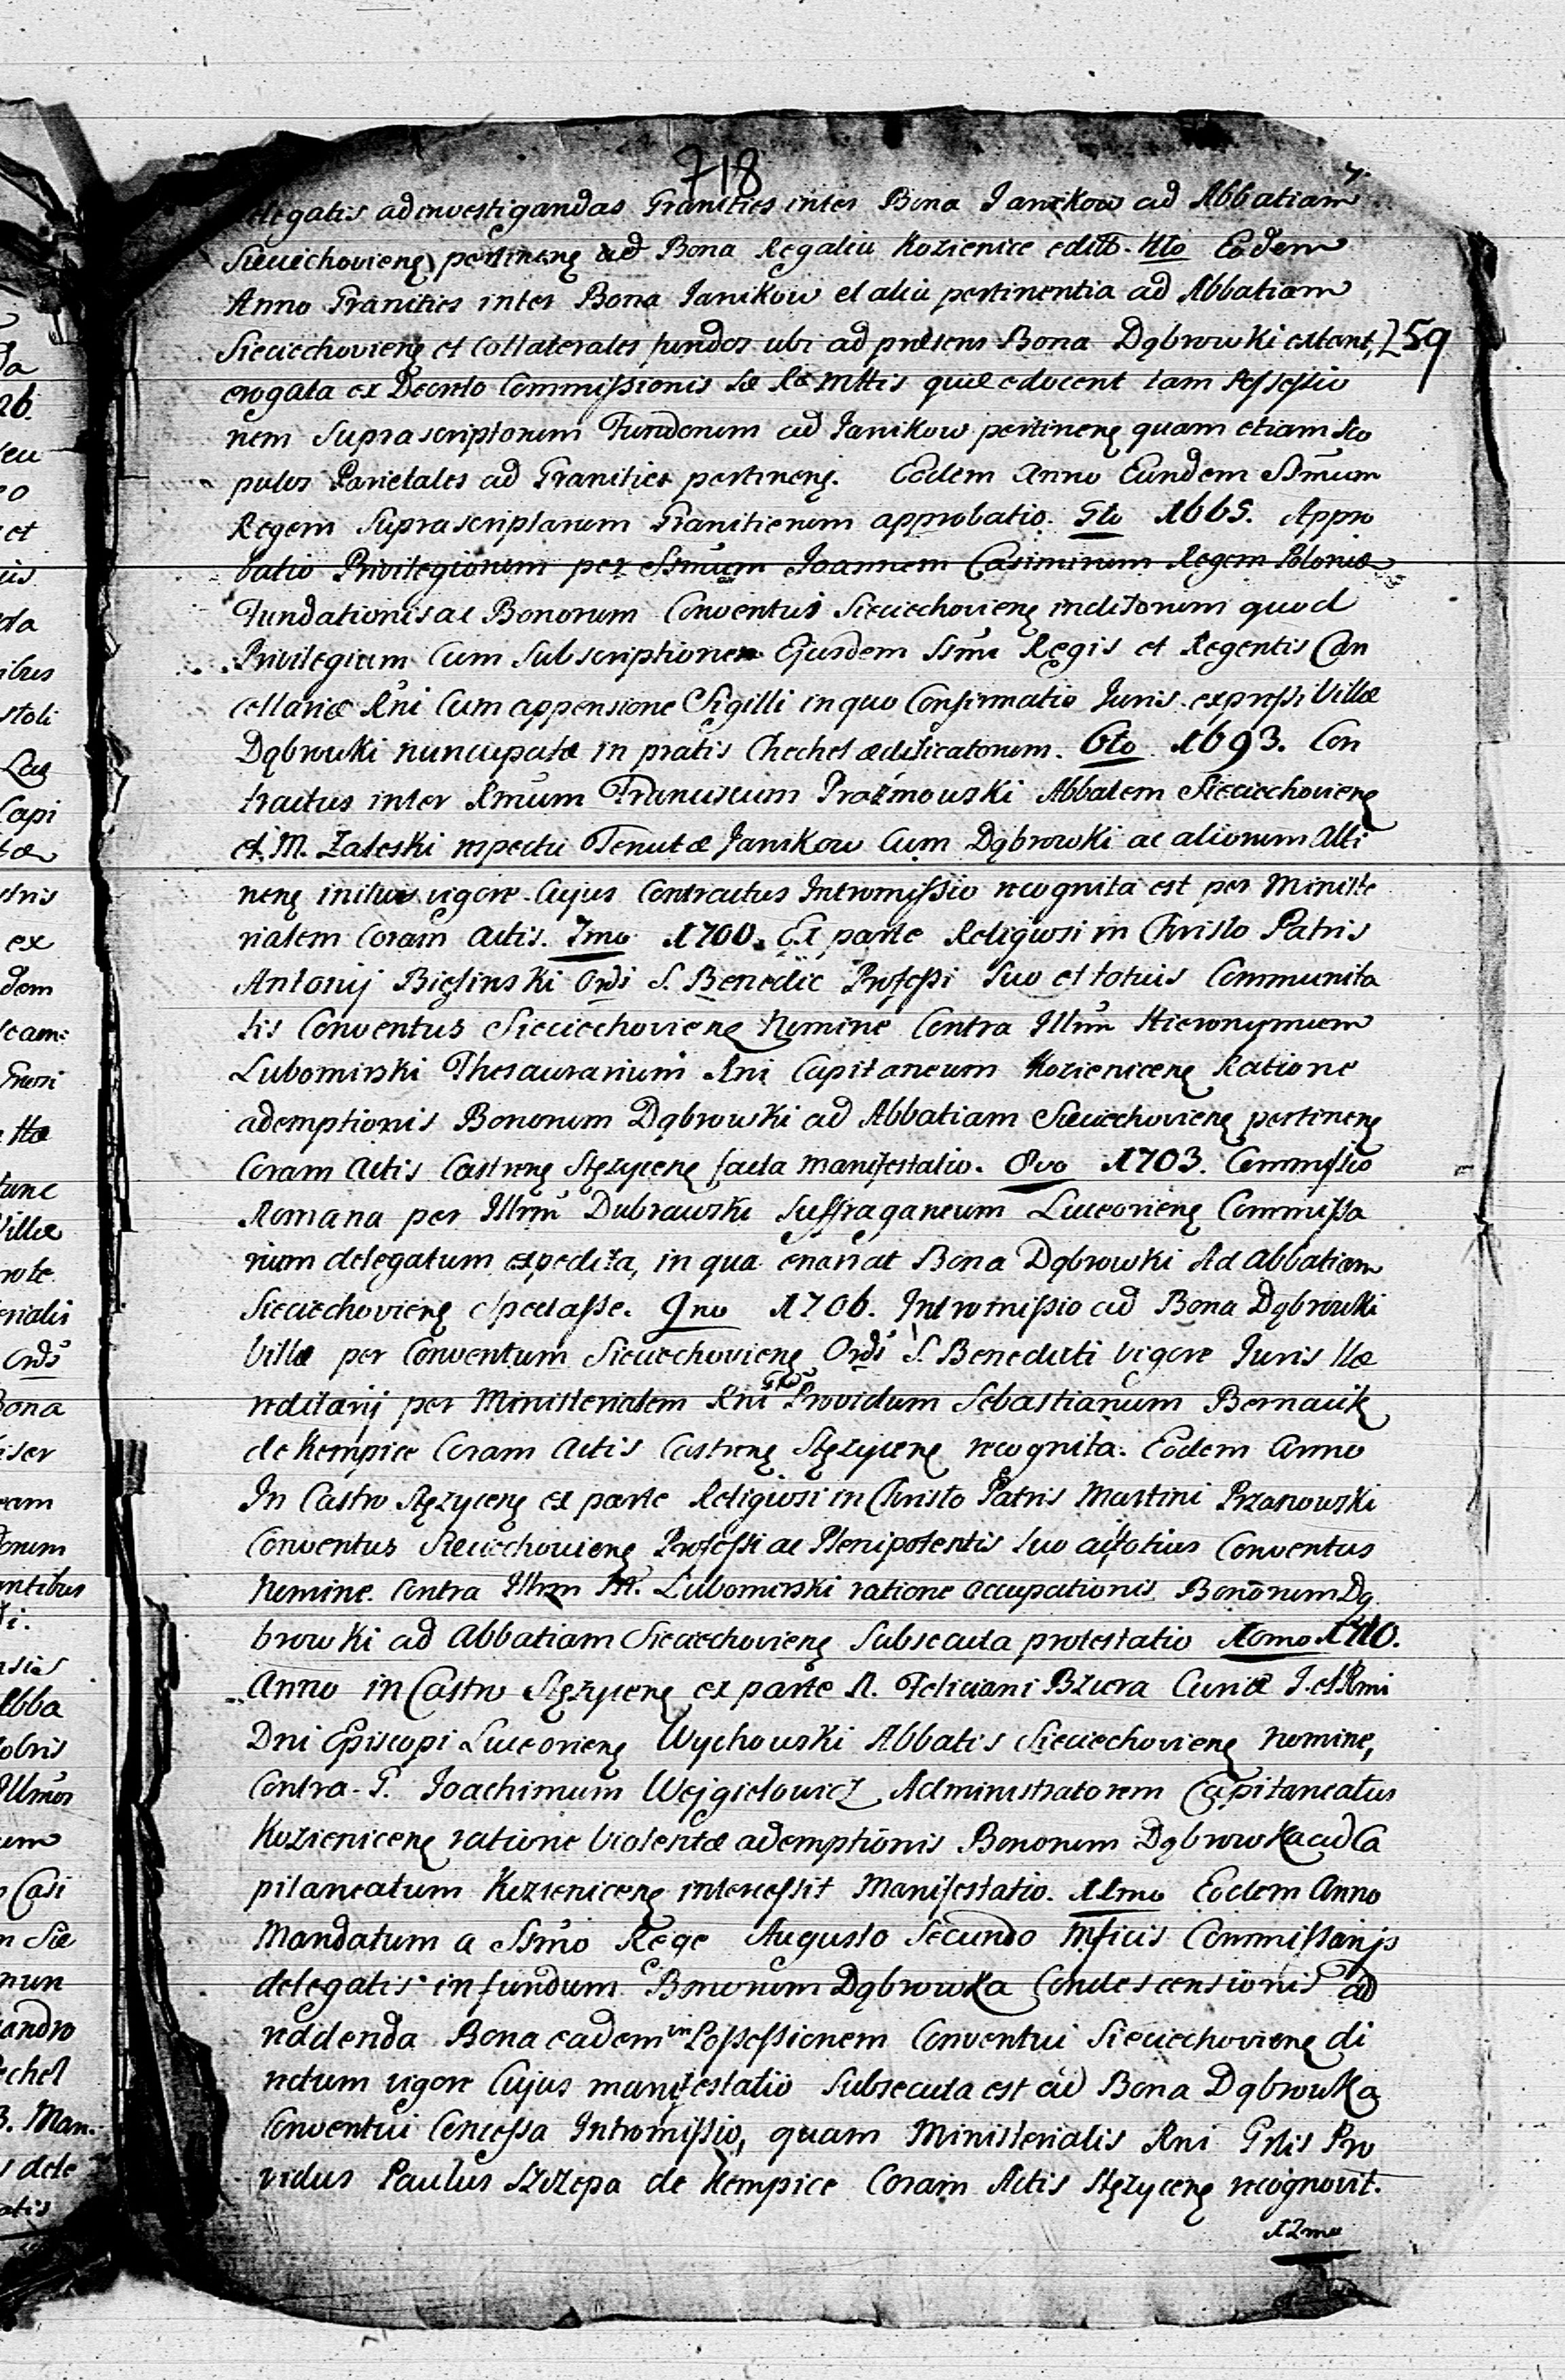 718
7.
elegatis ad investigandas Granities inter Bona Janikow ad Abbatiam
Sieciechovieng pertineng ad Bona Regalia Kozienice edito. 4to Eodem
Anno Granities inter Bona Janikow et alia pertinentia ad Abbatiam
Sieciechovieng et Collaterales fundos ubi ad præsens Bona Dąbrowki extant,
259
erogata ex Decreto Commissionis Sæ Ræ Mttis quæ edocent tam Assessio
nem Suprascriptorum Fundorum ad Janikow pertineng quam etiam Sco
pulos Parietales ad Granities pertineng. Eodem Anno Eundem Ssmum
Regem Suprascriptarum Granitierum approbatio. 5to 1665. Appro
batio Privilegiorum per Ssmum Joannem Casimirum Regem Poloniæ
Fundationis ac Bonorum Conventus Sieciechovieng inditorum quod
Privilegium Cum Subscriptione Ejusdem Ssmi Regis et Regentis Can
cellariæ Rni Cum appensione Sigilli in quo Confirmatio Juris expressi Villæ
Dąbrowki nuncupatæ in pratis Chechel ædificatorum. 6to 1693. Con
tractus inter Rmum Franciscum Prażmowski Abbatem Sieciechovieng
et M. Zaleski respectu Tenutæ Janikow Cum Dąbrowki ac aliorum Atti
neng initus vigore Cujus Contractus Intromissio recognita est per Ministe
rialem Coram Actis. 7mo 1700. Ex parte Religiosi in Christo Patris
Antonij Bielinski Ordi S. Benedic Professi Suo et totuis Communita
tis Conventus Sieciechovieng Nomine Contra Illrm Hieronymum
Lubomirski Thesaurarium Rni Capitaneum Kozieniceng Ratione
ademptionis Bonorum Dąbrowki ad Abbatiam Sieciechovieng pertineng
Coram Actis Castreng Stężyceng facta Manifestatio. 8vo 1703. Commissio
Romana per Illrm Dubrawski Suffraganeum Luceorieng Commissa
rium delegatum expedita, in qua enarrat Bona Dąbrowki Ad Abbatiam
Sieciechovieng Spectasse. 9no 1706. Intromissio ad Bona Dąbrowki
Villæ per Conventum Sieciechovieng Ords S. Benedicti Vigore Juris Hæ
reditarij per Ministerialem Rni Providum Sebastianum Bernacik
de Kempice Coram Actis Castreng Stężyceng recognita. Eodem Anno
In Castro Stężyceng ex parte Religiosi in Christo Patris Martini Przanowski
Conventus Sieciechovieng Professi ac Plenipotentis Suo ac totius Conventus
Nomine. Contra Illrm M. Lubomirski ratione occupationis Bonorum Dą
browki ad Abbatiam Sieciechovieng Subsecuta protestatio 10mo 1710.
Anno in Castro Stężyceng ex parte R. Feliciani Bzura Curiæ J. et Rmi
Dni Episcopi Luceorieng Wychowski Abbatis Sieciechovieng Nomine,
Contra G. Joachimum Wejgielowicz Administratorem Capitaneatus
Kozieniceng ratione Violentæ ademptionis Bonorum Dąbrowka ad Ca
pitaneatum Kozieniceng intercessit Manifestatio. 11mo Eodem Anno
Mandatum a Ssmo Rege Augusto Secundo Mficis Commissarijs
delegatis in fundum Bonorum Dąbrowka Condescensionis ad
reddenda Bona eadem in Possessionem Conventui Sieciechovieng di
rectum vigore Cujus manifestatio Subsecuta est ad Bona Dąbrowka
Conventui Concessa Intromissio, quam Ministerialis Rni Grlis Pro
vidus Paulus Szczepa de Kempice Coram Actis Stężyceng recognovit.
12mo